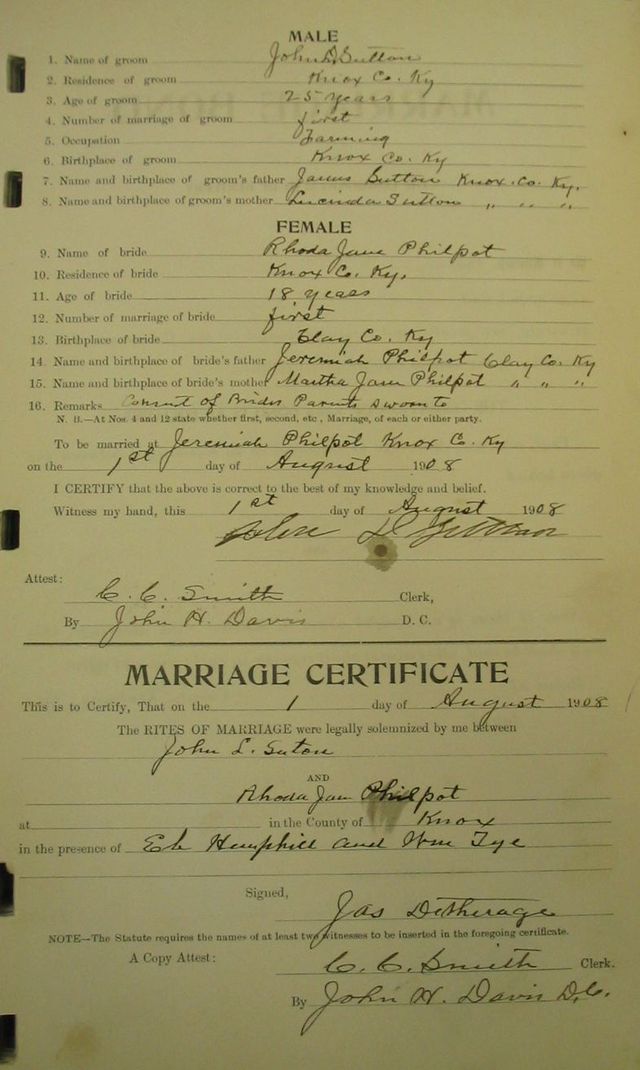 MALE
1. Name of groom John D. Sutton
2. Residence of groom Knox Co. Ky
3. Age of groom 25 years
4. Number of marriage of groom first
5. Occupation Farming
6. Birthplace of groom Knox Co. Ky
7. Name and birthplace of groom's father James Sutton Knox. Co. Ky.
8. Name and birthplace of groom's mother Lucinda Sutton " " "
FEMALE
9. Name of bride Rhoda Jane Philpot
10. Residence of bride Knox Co. Ky.
11. Age of bride 18 years
12. Number of marriage of bride first
13. Birthplace of bride Clay Co. Ky
14. Name and birthplace of bride's father Jeremiah Philpot Clay Co. Ky
15. Name and birthplace of bride's mother Martha Jane Philpot " " "
16. Remarks Consent of Brides Parents sworn to
N. B.—At Nos. 4 and 12 state whether first, second, etc., Marriage, of each or either party.
To be married at Jeremiah Philpot Knox Co. Ky
on the 1st day of August 1908
I CERTIFY that the above is correct to the best of my knowledge and belief.
Witness my hand, this 1st day of August 1908
John D Sutton
Attest:
C. C. Smith Clerk,
By John H. Davis D. C.
MARRIAGE CERTIFICATE
This is to Certify, That on the 1 day of August 1908
The RITES OF MARRIAGE were legally solemnized by me between
John L. Suton
AND
Rhoda Jane Philpot
at in the County of Knox
in the presence of Eb Hemphill and Wm Tye
Signed,
Jas Detherage
NOTE—The Statute requires the names of at least two witnesses to be inserted in the foregoing certificate.
A Copy Attest: C. C. Smith Clerk.
By John H. Davis D.C.